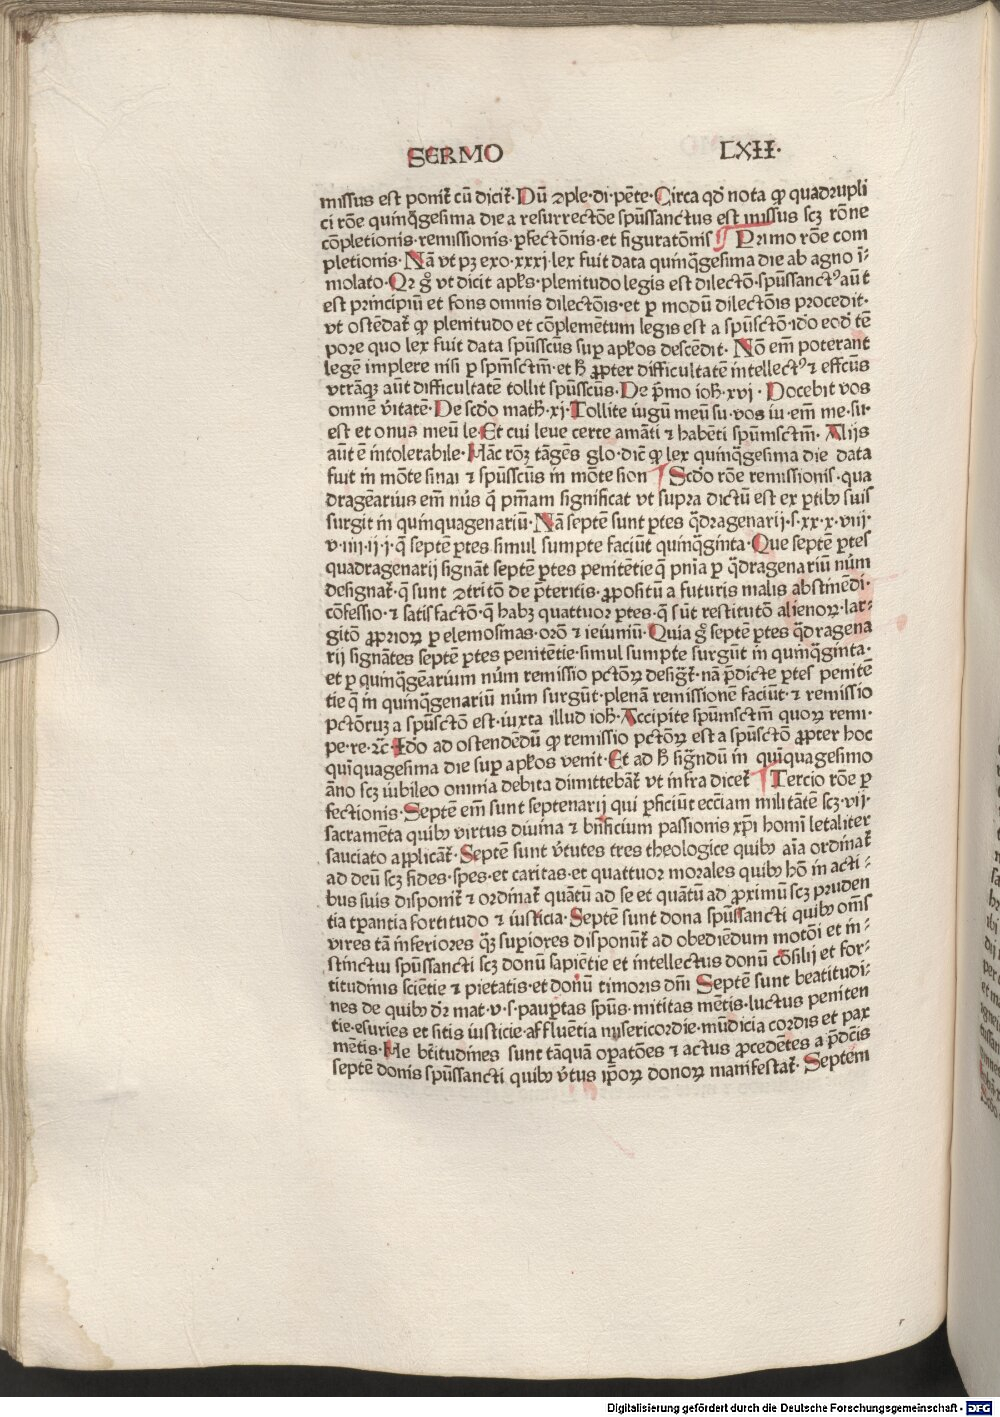 SERMO LXII·
missus est poniť cū dicit̃·Dū ↄple·di·pēte·Circa qď nota ꝙ quadrupli
ci rōne quinq̃gesima die a resurrectōe spūssanctus est missus scȝ rōne
cōpletionis·remissionis·ꝑfectōnis·et figuratōnis ¶ Primo rōe com
pletionis·Nā vt pȝ exo·xxxj·lex fuit data quinq̃gesima die ab agno ī-
molato·Qr̃ g̊ vt dicit apl̃s·plenitudo legis est dilectō·spūssanctꝰ aūt
est principiū et fons omnis dilectōis·et ꝑ modū dilectōis procedit·
vt ostēdat̃ ꝙ plenitudo et cōplemētum legis est a spūsctō·iďo eoď tē
pore quo lex fuit data spūsscūs suꝑ apl̃os descēdit· Nō em̄ poterant
legē implere nisi ꝑ spm̄sctm̄·et ħ ꝓpter difficultatē intellectꝰ ⁊ effcūs
vtrāqꝫ aūt difficultatē tollit spūsscūs·De p̄mo ioħ·xvi· Docebit vos
omnē v̄itatē·De scďo matħ·xj·Tollite iugū meū su·vos iu·em̄ me·su·
est et onus meū le·Et cui leue certe amāti ⁊ habēti spūmsctm̄· Alijs
aūt ē intolerabile·Hāc rōȝ tāgēs glo·dic̄ ꝙ lex quinq̃gesima die data
fuit in mōte sinai ⁊ spūsscūs in mōte sion ¶ Scďo rōe remissionis·qua
dragēarius em̄ nūs q̄ pnīam significat vt supra dictū est ex ꝑtibꝫ suis
surgit in quinquagenariū·Nā septē sunt ꝑtes q̃dragenarij·s·xx·x·viij·
v·iiij·ij·j·q̄ septē ꝑtes simul sumpte faciūt quinq̃ginta·Que septē ꝑtes
quadragenarij signāt septē ꝑtes penitētie q̄ pnīa ꝑ q̃dragenariū nūm
designat̃·q̄ sunt ↄtritō de p̄teritis·ꝓpositū a futuris malis abstinēdi·
cōfessio·⁊ satisfactō·q̄ habȝ quattuor ꝑtes·q̄ sūt restitutō alienoꝝ·lar-
gitō ꝓprioꝝ ꝑ elemosinas·orō ⁊ ieiuniū·Quia g̊ septē ꝑtes q̃dragena
rij signātes septē ꝑtes penitētie·simul sumpte surgūt in quinq̃ginta·
et ꝑ quinq̃gearium nūm remissio pctōꝝ desigt̃·nā p̄dicte ꝑtes penitē
tie q̄ in quinq̃genariū nūm surgūt·plenā remissionē faciūt·⁊ remissio
pctōruȝ a spūsctō est·iuxta illud ioħ·Accipite spūmsctm̄ quoꝝ remi·
pe·re·⁊c̄·Iďo ad ostendēdū ꝙ remissio pctōꝝ est a spūsctō ꝓpter hoc
quīquagesima die suꝑ apl̃os venit·Et ad ħ sigñdū in quīquagesimo
āno scȝ iubileo omnia debita dimittebāt̃ vt infra dicet̃ ¶ Tercio rōe ꝑ
fectionis·Septē em̄ sunt septenarij qui ꝑficiūt eccīam militātē scȝ·vij·
sacramēta quibꝫ virtus diuina ⁊ bn̄ficium passionis xp̄i homī letaliter
sauciato applicāt̃·Septē sunt v̄tutes tres theologice quibꝫ aīa ordinat̃
ad deū scȝ fides·spes·et caritas·et quattuor morales quibꝫ hō in acti-
bus suis disponit̃ ⁊ ordinat̃ quātū ad se et quātū ad ꝓximū scȝ pruden
tia tꝑantia fortitudo ⁊ iusticia·Septē sunt dona spūssancti quibꝫ om̄s
vires tā inferiores q̃ȝ suꝑiores disponūt̃ ad obediēdum motōi et in-
stinctui spūssancti scȝ donū sapiētie et intellectus donū cōsilij et for-
titudinis sciētie ⁊ pietatis·et donū timoris dn̄i Septē sunt beatitudi-
nes de quibꝫ dr̄ mat·v·s·pauꝑtas spūs·mititas mētis·luctus peniten
tie·esuries et sitis iusticie·affluētia misericordie·mūdicia cordis et pax
mētis·He btītudines sunt tāquā oꝑatōes ⁊ actus ꝓcedētes a p̄dcīs
septē donis spūssancti quibꝫ v̄tus ip̄oꝝ donoꝝ manifestat̃· Septem
Digitalisierung gefördert durch die Deutsche Forschungsgemeinschaft - DFG